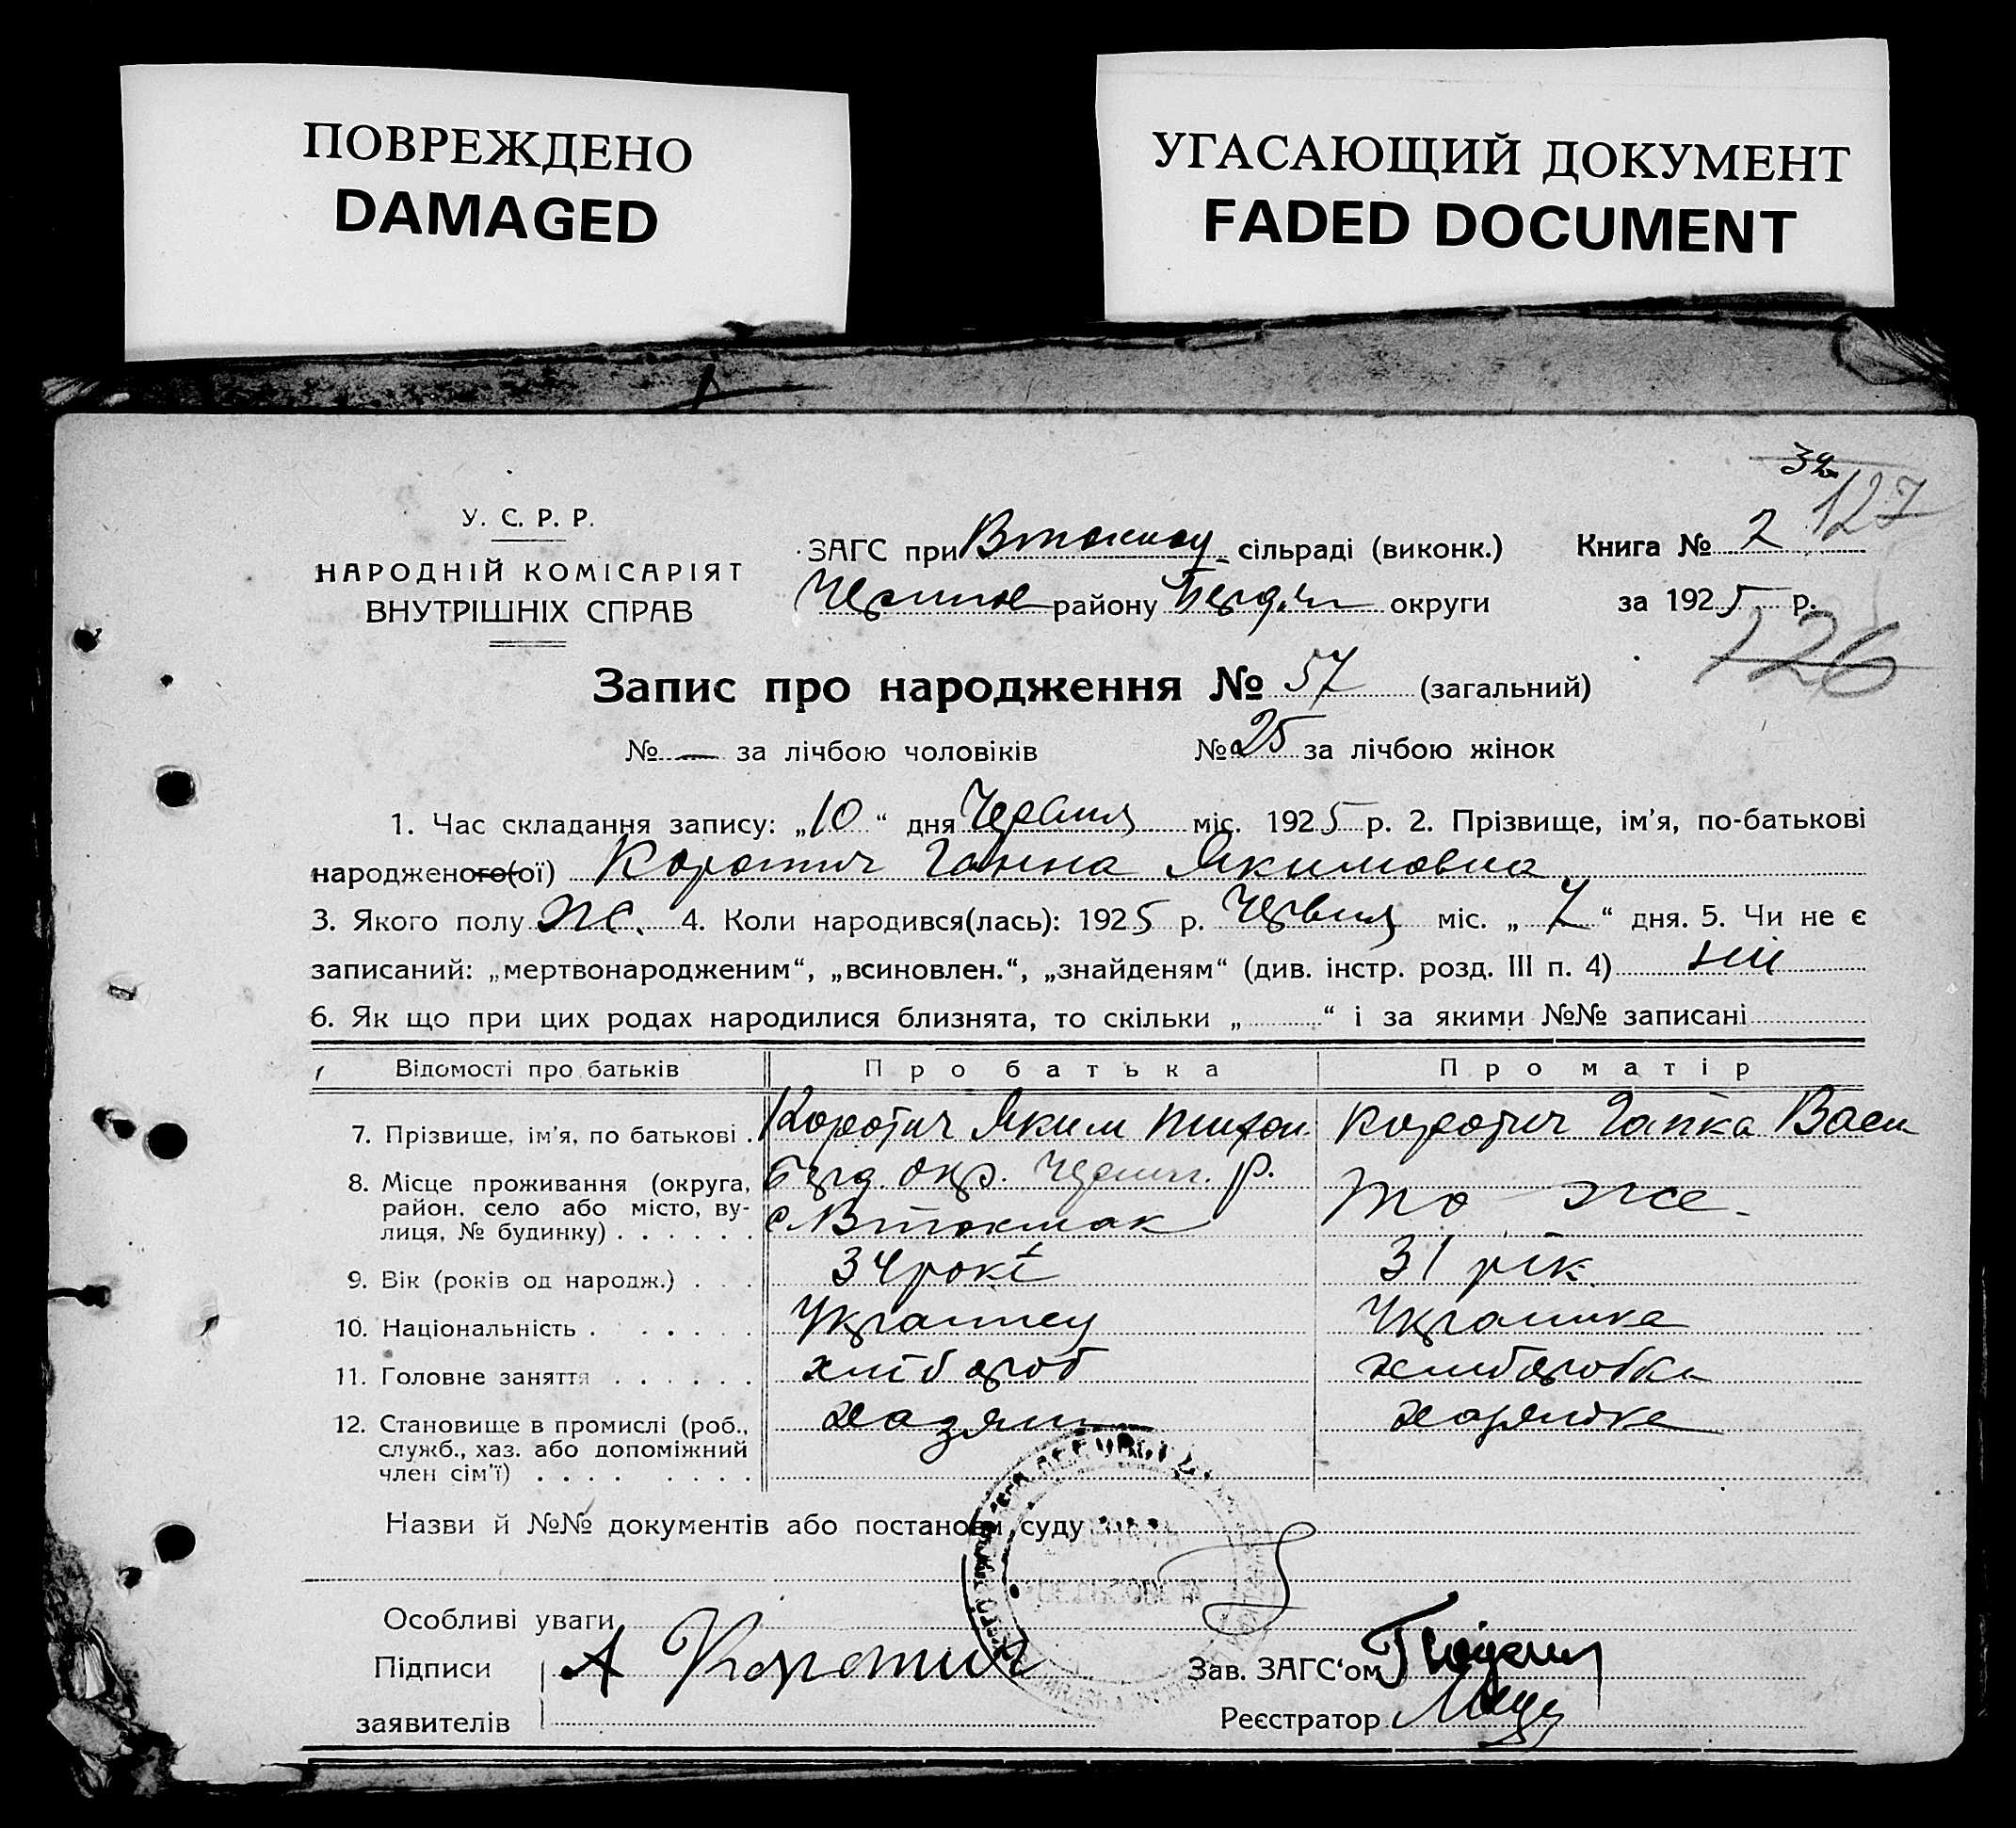 ПОВРЕЖДЕНО
DAMAGED
УГАСАЮЩИЙ ДОКУМЕНТ
FADED DOCUMENT
127
У. С. Р. Р.
НАРОДНІЙ КОМІСАРІЯТ
ВНУТРІШНІХ СПРАВ
ЗАГС при сільраді (виконк.) Книга № 2
району Бердян округи за 1925 р.
126
Запис про народження № 57 (загальний)
№ — за лічбою чоловіків № 25 за лічбою жінок
1. Час складання запису: „10“ дня Червня міс. 1925 р. 2. Прізвище, ім'я, по-батькові
народженого(ої) Коротич Ганна Якимовна
3. Якого полу ж. 4. Коли народився(лась): 1925 р. Червня міс. „7“ дня. 5. Чи не є
записаний: „мертвонародженим“, „всиновлен.“, „знайденям“ (див. інстр. розд. III п. 4) ні
6. Як що при цих родах народилися близнята, то скільки „ “ і за якими №№ записані
Відомості про батьків Про батька Про матір
7. Прізвище, ім'я, по батькові . Коротич Яким Коротич Гапка Васи
8. Місце проживання (округа, Берд. окр. р.
район, село або місто, ву- с Втокмак то же
лиця, № будинку) . . . . . .
9. Вік (років од народж.) . . . 34 рокі 31 рік
10. Національність . . . . . . Украинец Украинка
11. Головне заняття . . . . . . хліб ороб хлиборобка
12. Становище в промислі (роб., хазяин хазяйка
служб., хаз. або допоміжний
член сім'ї) . . . . . . . .
Назви й №№ документів або постанови суду
Особливі уваги
Підписи А Коротич Зав. ЗАГС‘ом
заявителів Реєстратор